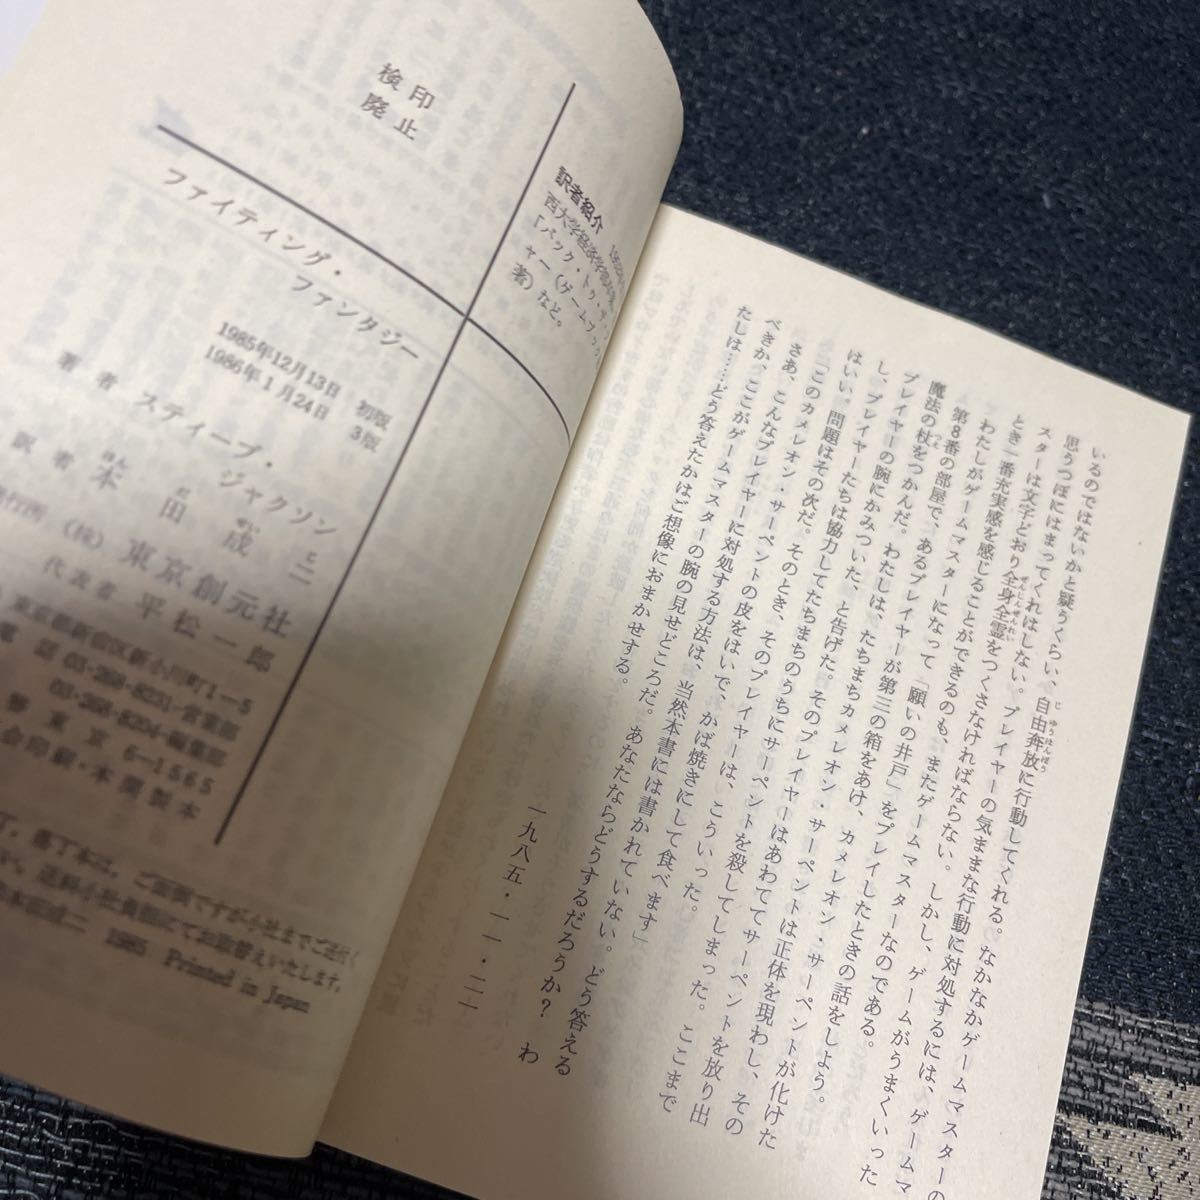 いるのではないかと疑うくらい、自由奔放に行動してくれる。なかなかゲームマスターの
思うつぼにはまってくれはしない。プレイヤーの気ままな行動に対処するには、ゲームマ
スターは文字どおり全身全霊をつくさなければならない。しかし、ゲームがうまくいった
とき一番充実感を感じることができるのも、またゲームマスターなのである。
わたしがゲームマスターになって「願いの井戸」をプレイしたときの話をしよう。
第8番の部屋で、あるプレイヤーが第三の箱をあけ、カメレオン・サーペントが化けた
魔法の杖をつかんだ。わたしは、たちまちカメレオン・サーペントは正体を現わし、その
プレイヤーの腕にかみついた、と告げた。そのプレイヤーはあわててサーペントを放り出
し、プレイヤーたちは協力してたちまちのうちにサーペントを殺してしまった。ここまで
はいい。問題はその次だ。そのとき、そのプレイヤーは、こういった。
「このカメレオン・サーペントの皮をはいで、かば焼きにして食べます」
さあ、こんなプレイヤーに対処する方法は、当然本書には書かれていない。どう答える
べきか、ここがゲームマスターの腕の見せどころだ。あなたならどうするだろうか? わ
たしは……どう答えたかはご想像におまかせする。
一九八五・一一・二一
検印
廃止
訳者紹介
西大学経済学部
「バック・トゥ・ザ
ヤー(ゲームブック
著)など。
ファイティング・
ファンタジー
1985年12月13日 初版
1986年1月24日 3版
著者 スティーブ・
ジャクソン
訳者 本田成二
発行所 (株)東京創元社
代表者 平松一郎
東京都新宿区新小川町1-5
電話 03・268-8231-営業部
03・268-8204-編集部
振替 東京 6-1565
印刷・本間製本
丁、落丁本は、ご面倒ですが小社までご送付く
送料小社負担にてお取替えいたします。
1985 Printed in Japan